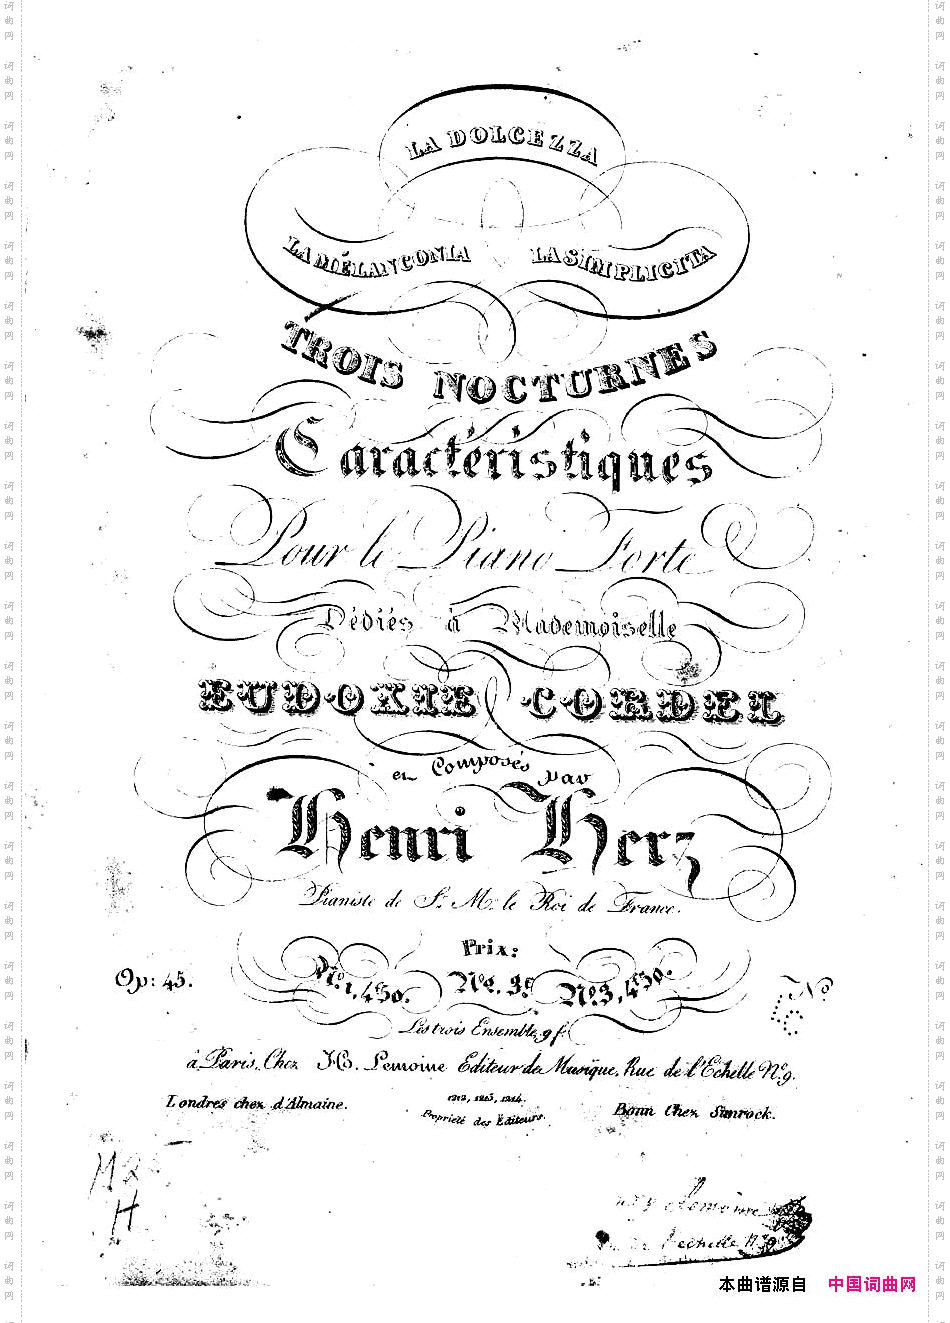 LA DOLCEZZA
LA MÉLANCONIA LA SIMPLICITA
TROIS NOCTURNES
Caractéristiques
Pour le Piano Forte
Dédiés à Mademoiselle
EUDOXIE CORDEL
et Composés par
Henri Herz
Pianiste de S. M. le Roi de France.
Prix:
Op: 45. No. 1, 4f 50. No. 2. 3f No. 3, 4f 50. No
Les trois Ensemble, 9 f.
à Paris, Chez H. Lemoine Editeur de Musique, Rue de l'Echelle No. 9.
Londres chez d'Almaine. 1212, 1213, 1214. Bonn Chez Simrock.
Propriété des Editeurs.
M2
H
Lemoine
l'echelle No 9
本曲谱源自 中国词曲网
词曲网